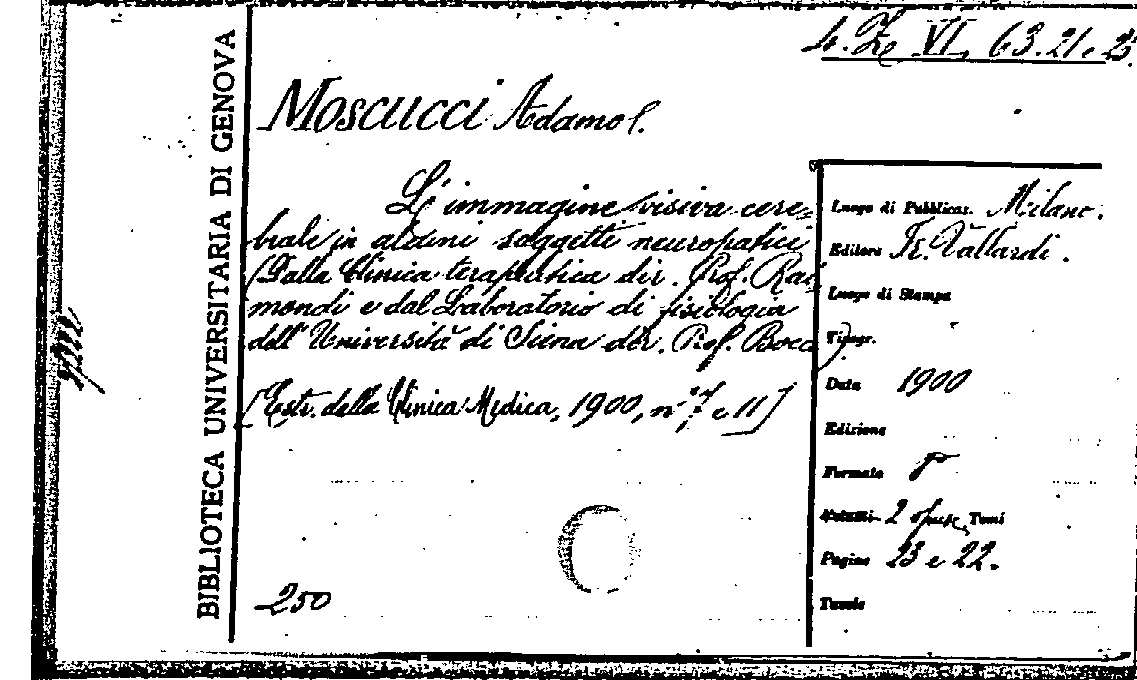 4. Ze VI, 63.21 e 23.
BIBLIOTECA UNIVERSITARIA DI GENOVA
Moscucci Adamo
L'immagine visiva cere=
brale in alcuni soggetti neuropatici
(Dalla Clinica terapeutica dir. Prof. Rai
mondi e dal Laboratorio di fisiologia
dell' Università di Siena dir. Prof. Bocci)
[Estr. dalla Clinica Medica, 1900, n. 7 e 11]
250
Luogo di Pubblicaz. Milano.
Editore Fr. Vallardi.
Luogo di Stampa
Tipogr.
Data 1900
Edizione
Formato 8°
Volumi 2 opusc. Tomi
Pagine 23 e 22.
Tavole